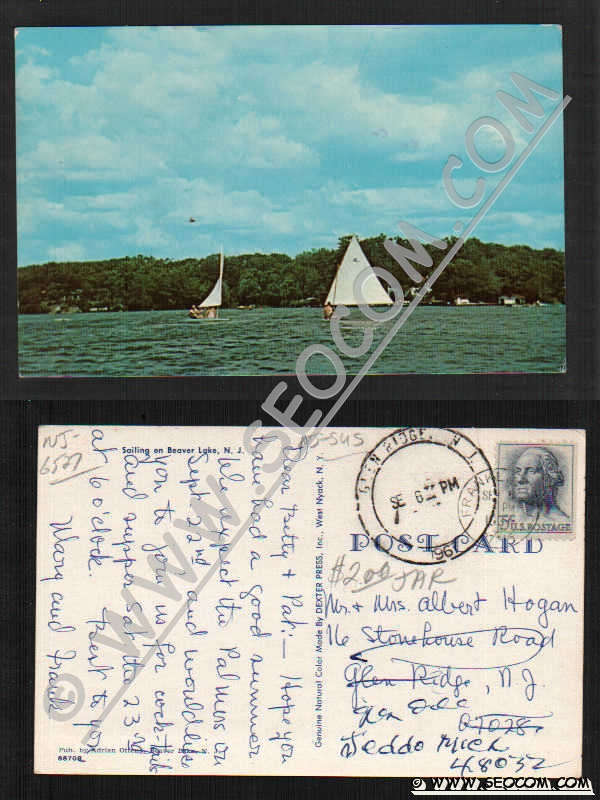 © WWW.SEOCOM.COM
NJ-
6527
Sailing on Beaver Lake, N. J.
NJ-SUS
Dear Betty & Pat:— Hope you
have had a good summer.
We expect the Palmers on
Sept 22nd and would like
you to join us for cock-tails
and supper Sat. the 23rd
at 6 o'clock. Best to you
Mary and Frank
Pub. by Adrian
Beaver Lake, N.
68708
Genuine Natural Color Made By DEXTER PRESS, Inc., West Nyack, N. Y.
GLEN RIDGE, N. J.
SE
PM
196
U.S. POSTAGE
POST CARD
$2.00 JAR
Mr. & Mrs. Albert Hogan
16 Stonehouse Road
Glen Ridge, N.J.
07028
Mich
48052
© WWW.SEOCOM.COM